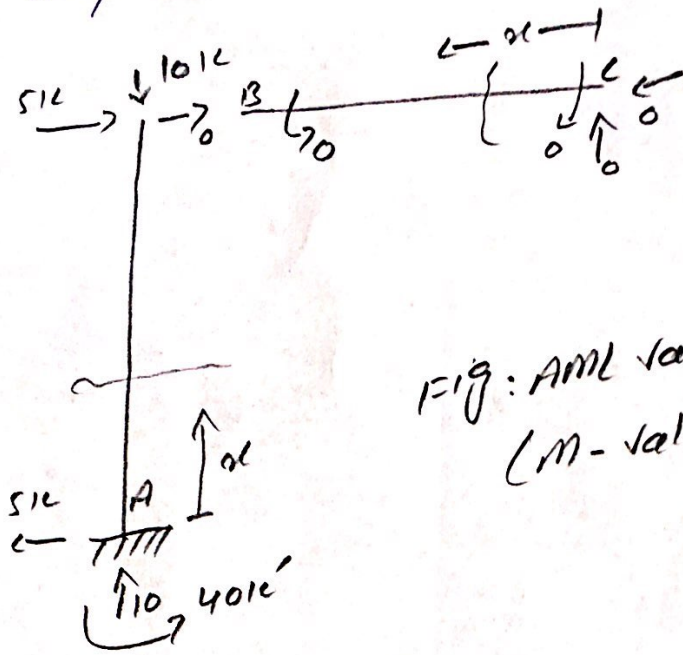 10K
5K
0
B
0
x
C
0
0
0
Fig: AML
(M-
x
5K
A
10
40K'